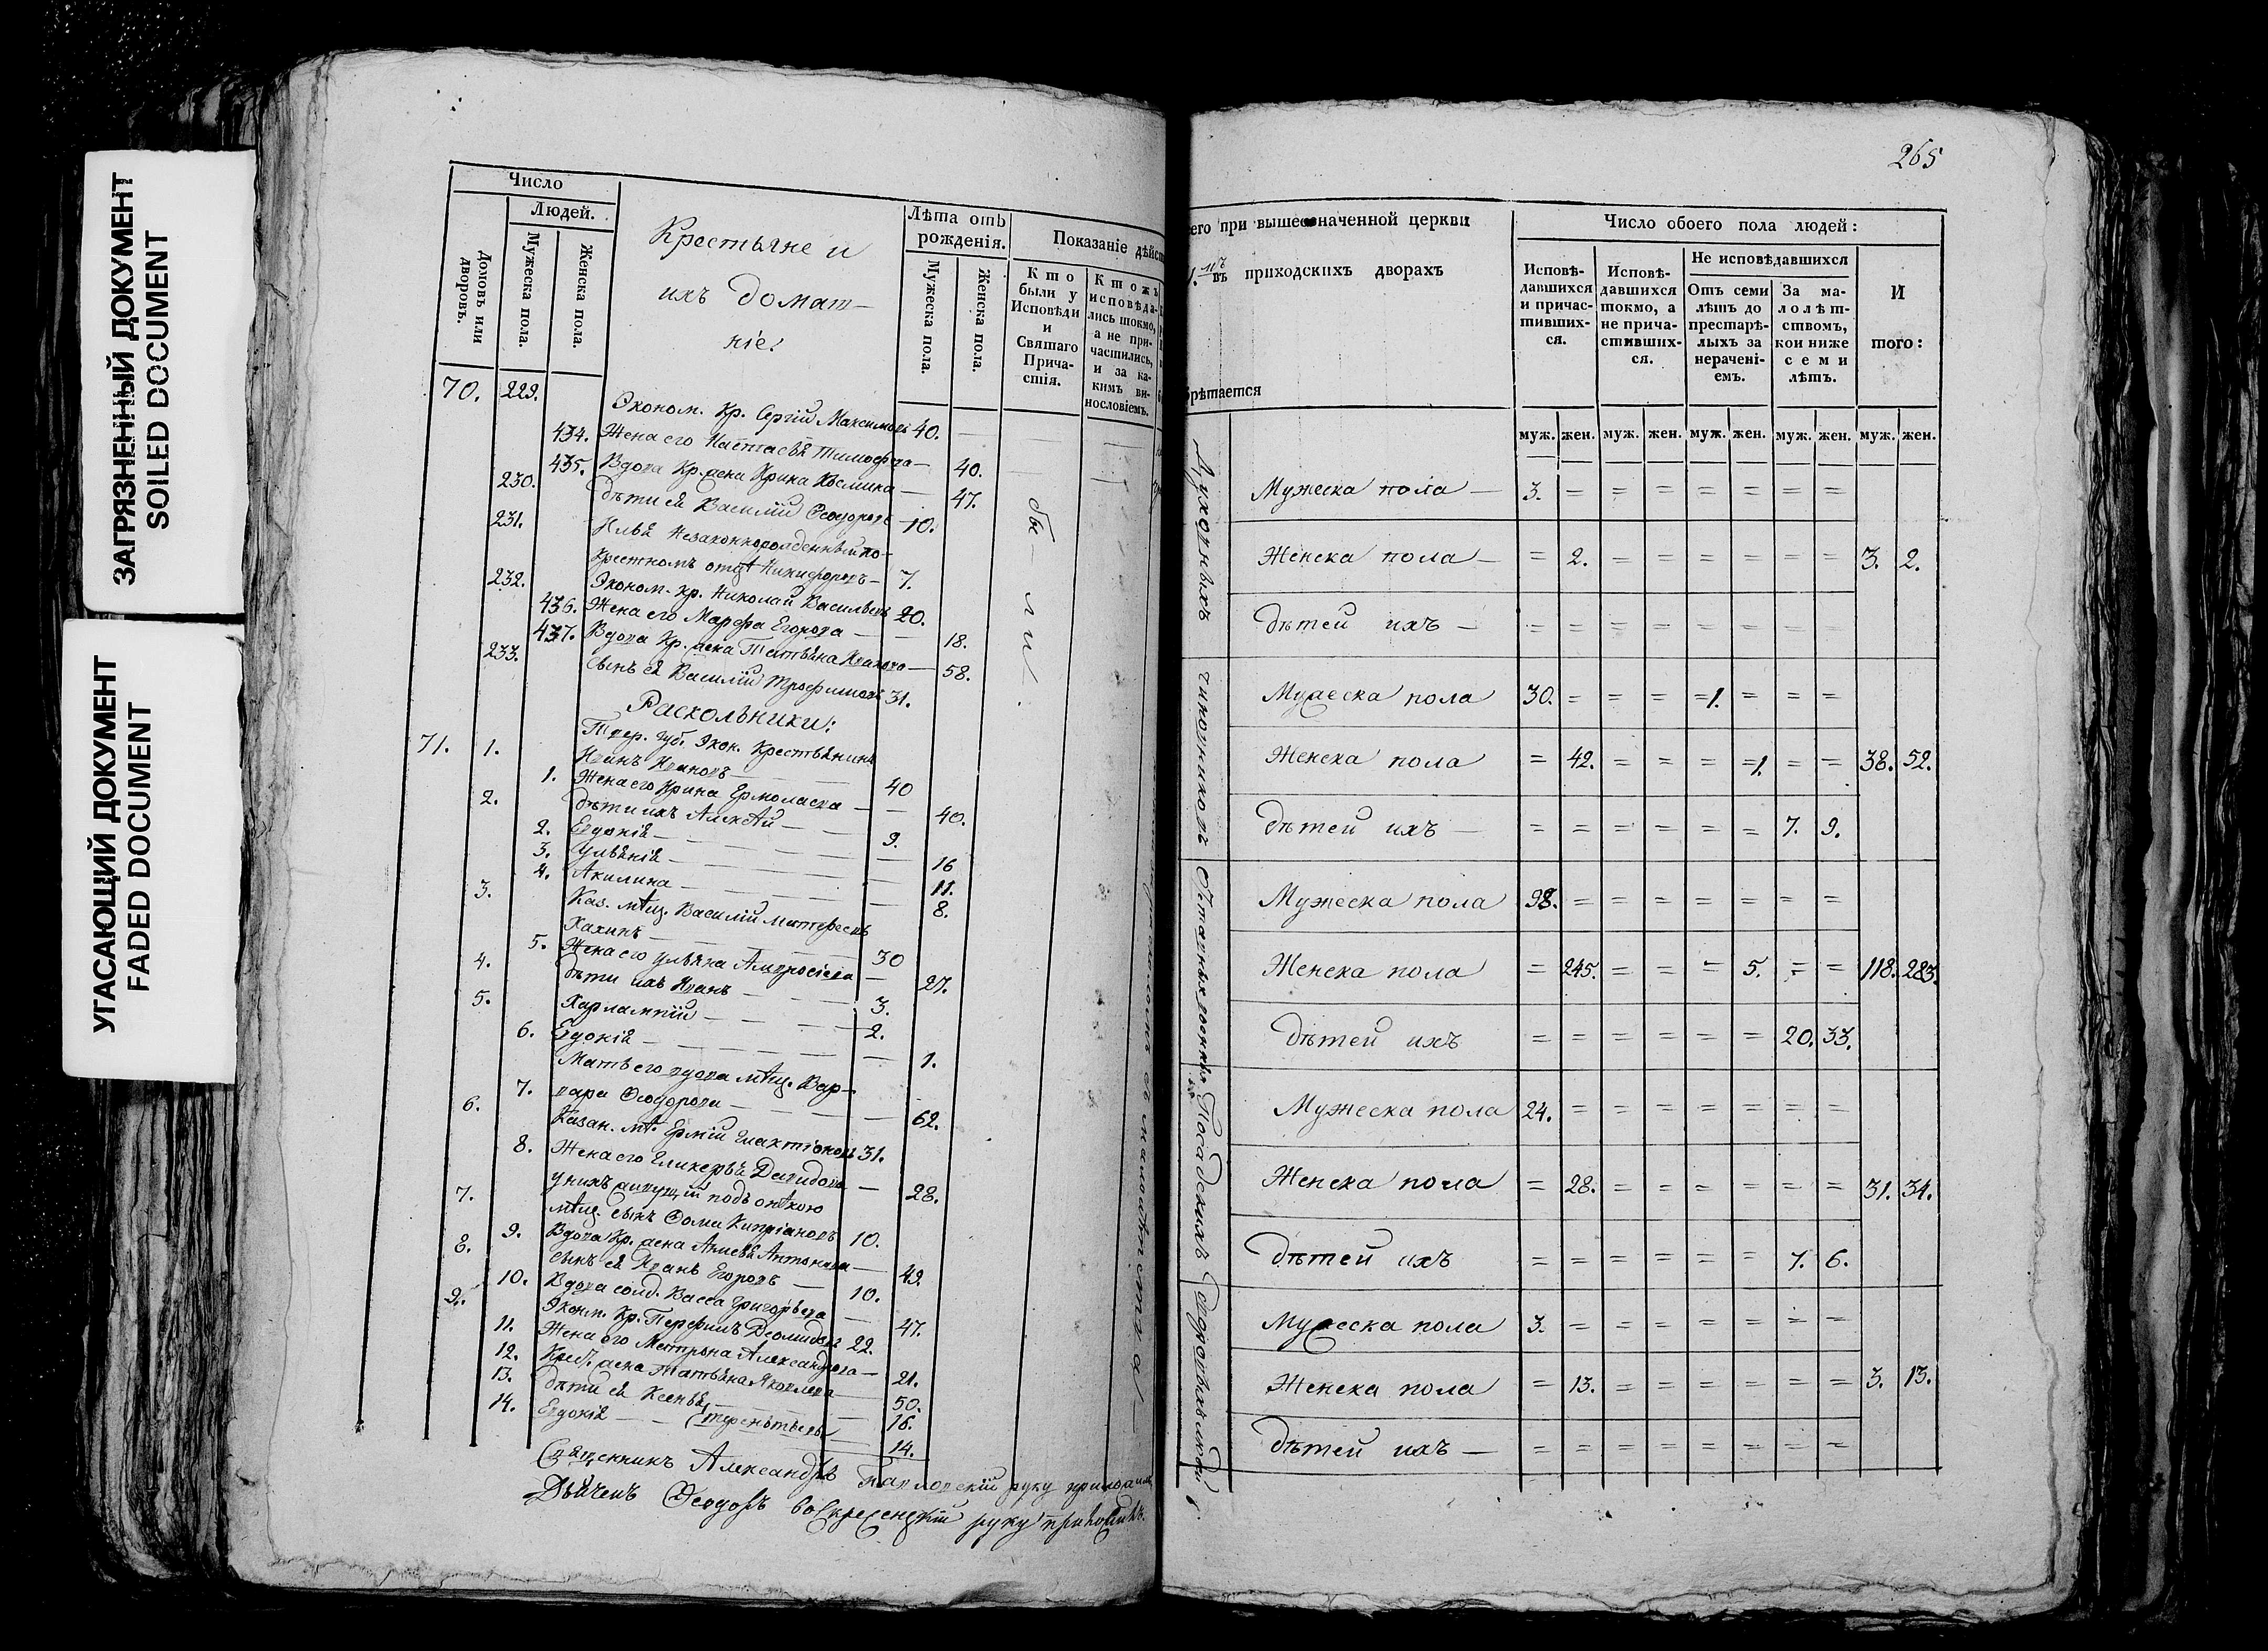 ЗАГРЯЗНЕННЫЙ ДОКУМЕНТ
SOILED DOCUMENT
УГАСАЮЩИЙ ДОКУМЕНТ
FADED DOCUMENT
Число
Людей.
Домовъ или дворовъ.
Мужеска пола.
Женска пола.
Крестьяне и
ихъ домаш-
ніе:
Лѣта отъ
рожденія.
Мужеска пола.
Женска пола.
Показаніе дѣйст
Кто
были у
Исповѣди
и
Святаго
Прича-
стія.
Ктожъ
исповѣда-
лись токмо,
а не при-
частились,
и за ка-
кимъ ви-
нословіемъ.
70. 229. Эконом. Кр. Сергій Максимовъ 40.
434. Жена его Настасья Тимофева — 40.
435. Вдова Кр. жена Ирина Козмина — 47.
230. дѣти ея Василій Ѳеодоровъ — 10.
231. Илья Незаконнорожденный по-
крестномъ отцѣ Никифоровъ — 7.
232. Эконом. кр. Николай Васильевъ 20.
436. Жена его Марфа Егорова — 18.
437. Вдова Кр. жена Татьяна Иванова — 58.
233. сынъ ея Василій Трофимовъ 31.
были
Раскольники:
71. 1. Твер. губ. Экон. Крестьянинъ
Иванъ Ивановъ — 40
1. Жена его Ирина Ермолаева — 40.
2. дѣти ихъ Алексѣй — 9.
2. Евдокія — 16
3. Ульянія — 11.
4. Акилина — 8.
3. Каз. мѣщ. Василій Матвеевъ
Хахинъ — 30
5. Жена его Ульяна Амвросіева — 27.
4. дѣти ихъ Иванъ — 3.
5. Харлампій — 2.
6. Евдокія — 1.
Мать его вдова мѣщ. Вар-
7. вара Ѳеодорова — 62.
6. Казан. мѣ. Ермій Галактіоновъ 31.
8. Жена его Гликерья Давидова — 28.
у нихъ живущій подъ опѣкою
7. мѣщ. сынъ Ѳома Кипріановъ 10.
9. Вдова Кр. жена Анисья Антонова — 49.
8. сынъ ея Иванъ Егоровъ — 10.
10. Вдова солд. Васса Григорьева — 47.
9. Эконом. Кр. Перфилъ Деомидовъ 22.
11. Жена его Матрона Александрова — 21.
12. Крест. жена Татьяна Яковлева — 50.
13. дѣти ея Ксенья — 16.
14. Евдокія — Терентьевы — 14.
Священникъ Александръ Павловскій руку приложилъ
Дьячекъ Ѳеодоръ Воскресенскій руку приложилъ.
265
его при вышеозначенной церкви
въ приходскихъ дворахъ
брѣтается
Число обоего пола людей:
Исповѣ-
давшихся
и причас-
тивших-
ся.
Исповѣ-
давшихся
токмо, а
не прича-
стивших-
ся.
Не исповѣдавшихся
Отъ семи
лѣтъ до
престарѣ-
лыхъ за
нерачені-
емъ.
За ма-
лолѣт-
ствомъ,
кои ниже
семи
лѣтъ.
И
того:
муж. жен. муж. жен. муж. жен. муж. жен. муж. жен.
Духовныхъ
Мужеска пола — 3. = = = = = = =
Женска пола — = 2. = = = = = = 3. 2.
дѣтей ихъ — = = = = = = = =
Мужеска пола 30. = = = =1. = = =
Женска пола = 42. = = = =1. = = 38. 52.
дѣтей ихъ — = = = = = = 7. 9.
Мужеска пола 98. = = = = = = =
Женска пола = 245. = = = 5. = = 118. 283.
дѣтей ихъ = = = = = = 20. 33.
Посадскихъ
Мужеска пола 24. = = = = = = =
Женска пола = 28. = = = = = = 31. 34.
дѣтей ихъ = = = = = = 7. 6.
Дворовыхъ людей
Мужеска пола 3. = = = = = = =
Женска пола = 13. = = = = = = 3. 13.
дѣтей ихъ — = = = = = = = =